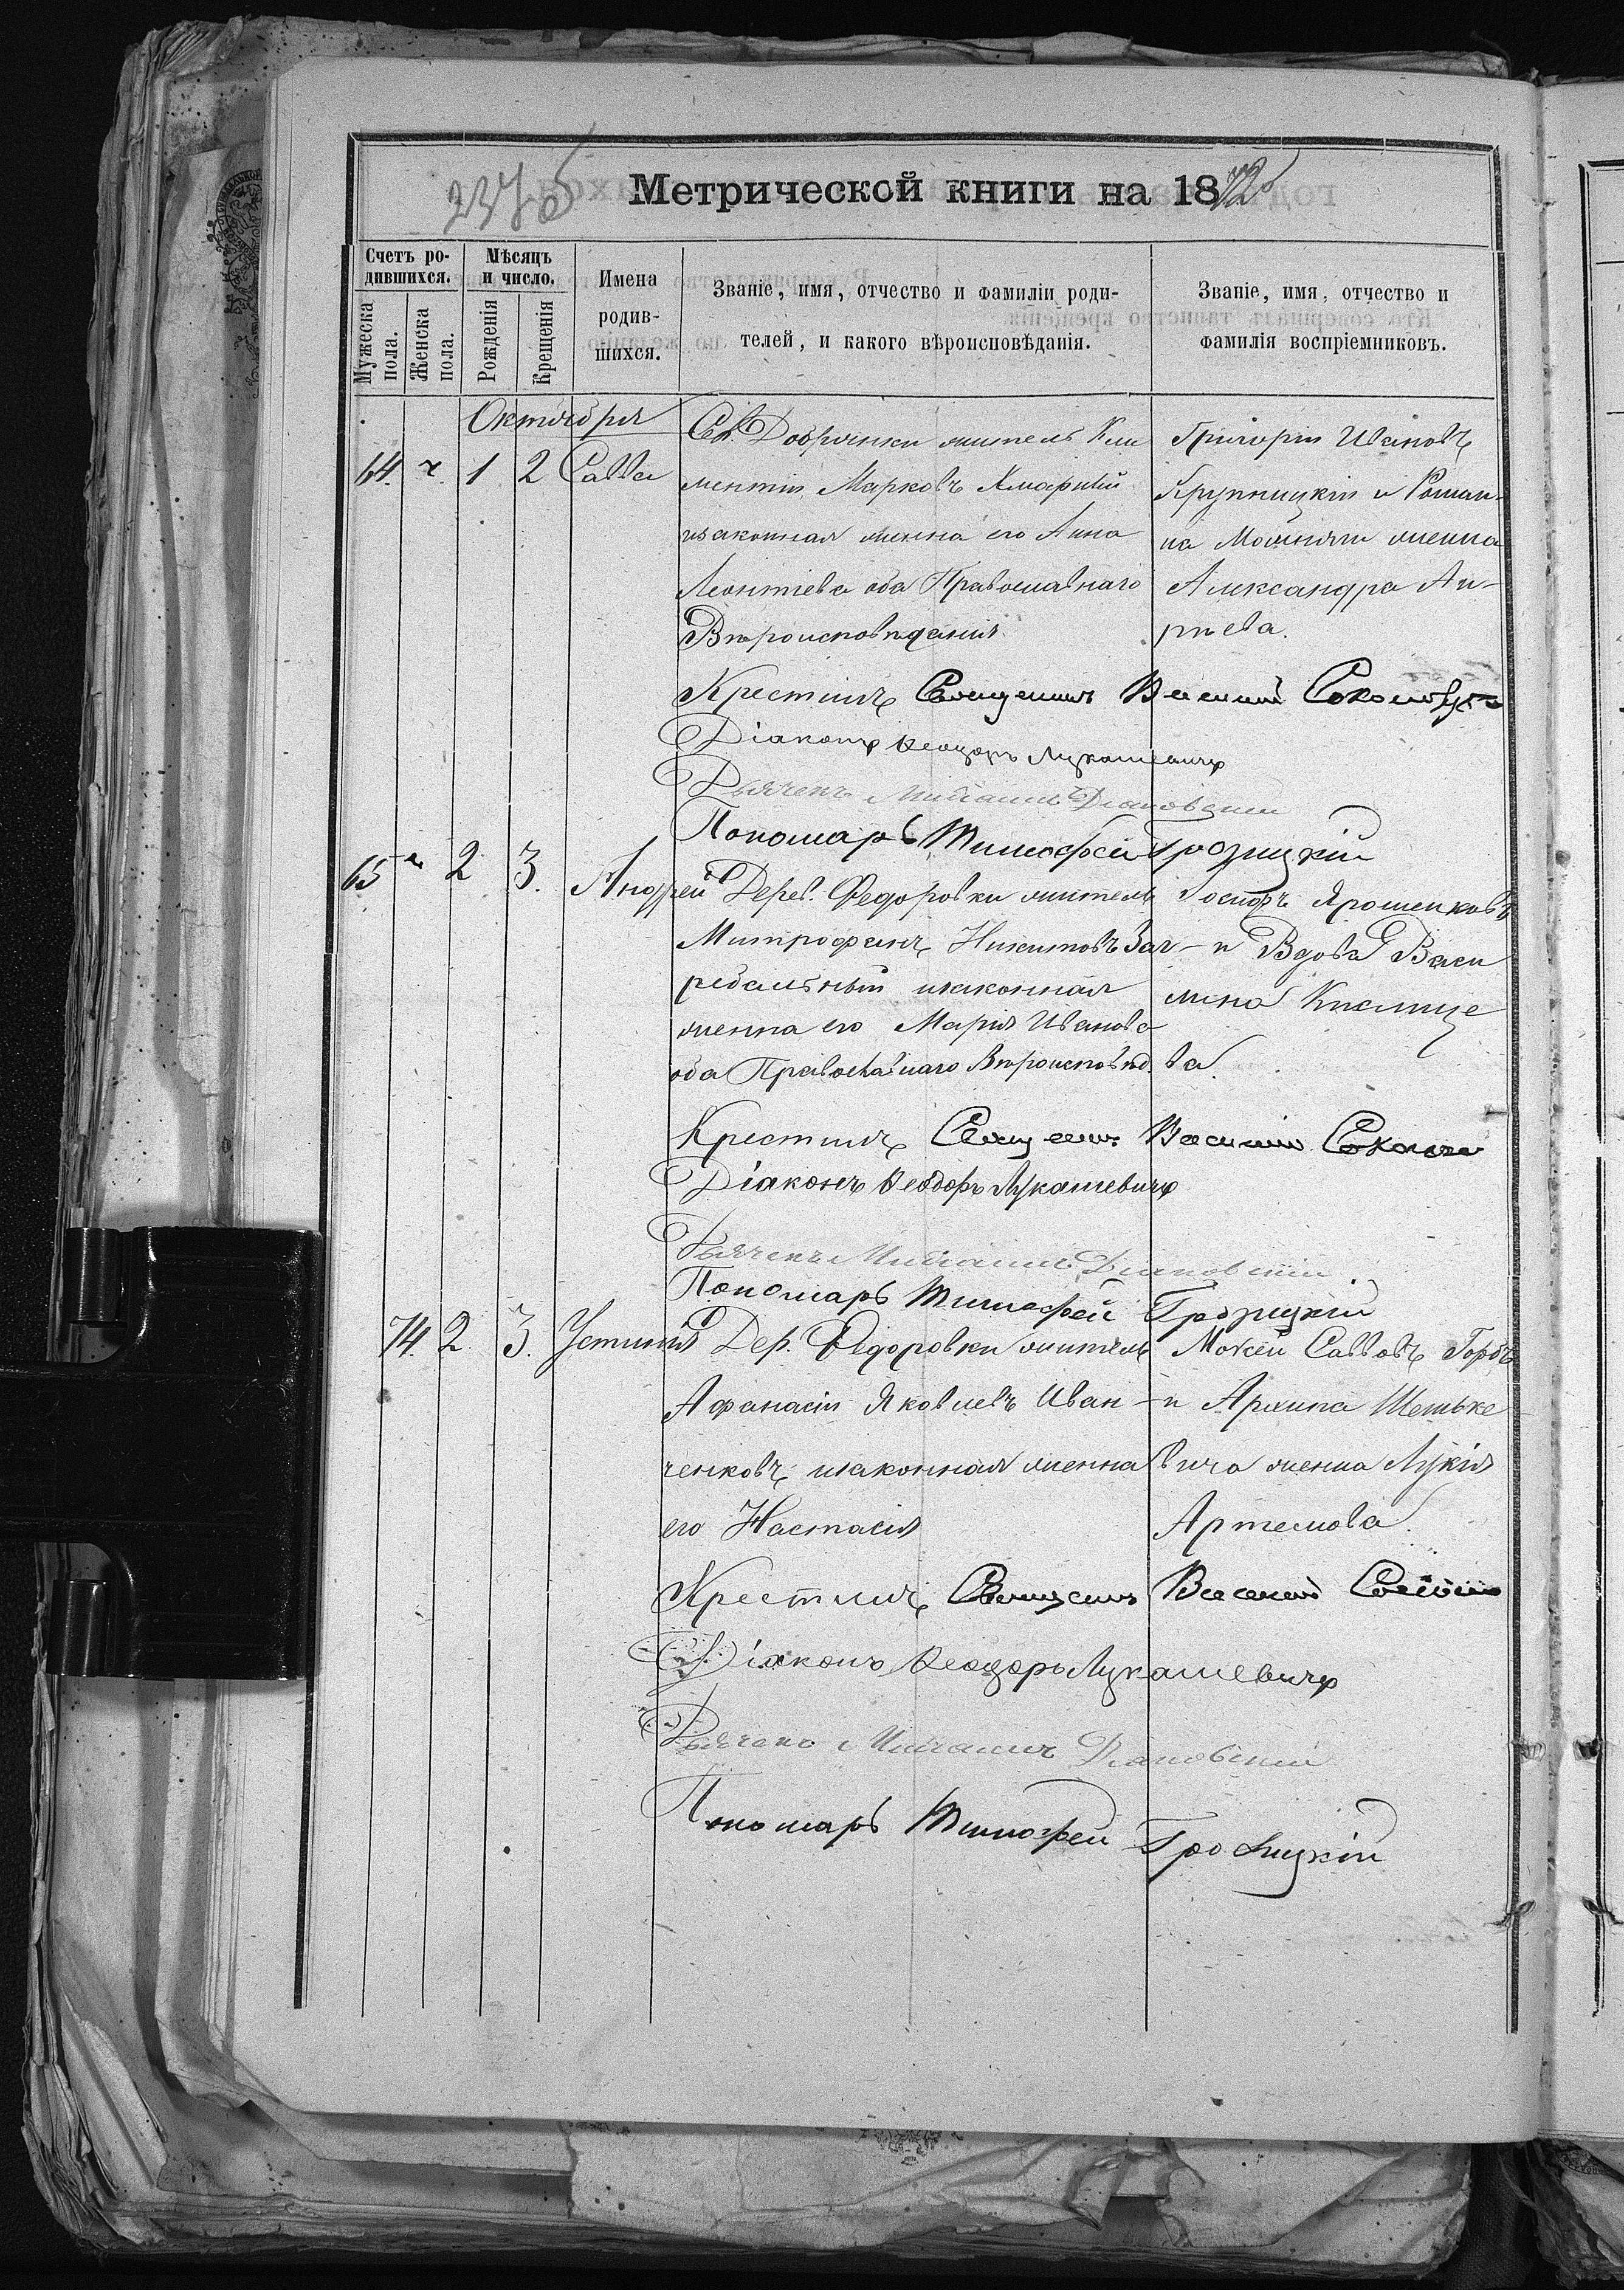 Метрической книги на 1872
Счетъ родившихся.
Мѣсяцъ и число.
Мужеска пола.
Женска пола.
Рожденія
Крещенія
Имена родившихся.
Званіе, имя, отчество и фамиліи роди-
телей, и какого вѣроисповѣданія.
Званіе, имя, отчество и
фамилія воспріемниковъ.
Октября
64. 1 2 Савва
Сел. Добрянки житель Кли
ментій Марковъ Хмарный
изаконная женна его Анна
Леонтіева оба Православнаго
Вѣроисповѣданія
Григорій Ивановъ
Крупницкій и Роман-
на женна
Александра Ан-
рѣева.
Крестилъ Священникъ Василій
Діаконъ Ѳеодоръ Лукашевичъ
Дьячекъ Михаилъ
Пономарь Тимофей Гродицкій
65 2 3. Андрей
Дерев. Федоровки житель
Митрофанъ Никитовъ Заг-
ребельный изаконная
женна его Марія Иванова
оба Православнаго Вѣроисповѣд.
Ярошенковъ
и Вдова Васи
лина
ва.
Крестилъ Священ. Василій
Діаконъ Ѳеодоръ Лукашевичъ
Дьячекъ Михаилъ
Пономарь Тимофей Гродицкій
74. 2. 3. Устинія
Дер. Федоровки житель
Афанасій Яковлевъ Иван-
ченковъ изаконная женна
его Настасія
Мокей Саввовъ Горбъ
и Архипа Шетьке
вича женна Лукія
Артемова.
Крестилъ Священникъ Василій
Діаконъ Ѳеодоръ Лукашевичъ
Дьячекъ Михаилъ
Пономарь Тимофей Гродицкій